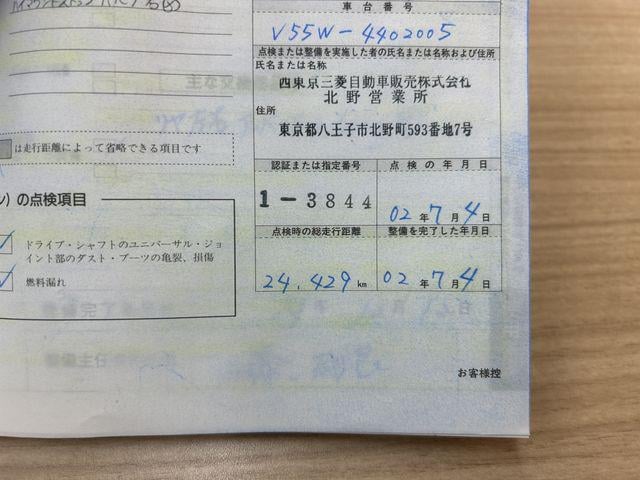 車台番号
V55W-4402005
点検または整備を実施した者の氏名または名称および住所
氏名または名称
西東京三菱自動車販売株式会社
北野営業所
住所
東京都八王子市北野町593番地7号
は走行距離によって省略できる項目です
認証または指定番号 点検の年月日
1-3844 02年7月4日
点検時の総走行距離 整備を完了した年月日
24,429km 02年7月4日
ン)の点検項目
ドライブ・シャフトのユニバーサル・ジョ
イント部のダスト・ブーツの亀裂、損傷
燃料漏れ
お客様控